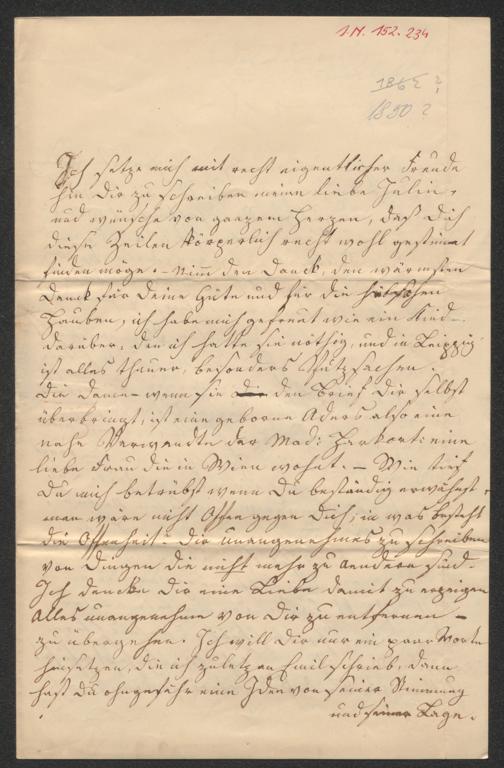 I.N. 152.234
1865 ?
1850 ?
Ich setze mich mit recht eigentlicher Freude
hin Dir zu schreiben meine liebe Julie,
und wünsche von ganzem Herzen, daß Dich
diese Zeilen körperlich recht wohl gestimmt
finden möge. – Nimm den Danck, den wärmsten
Danck für Deine Güte und für die hübschen
Hauben, ich habe mich gefreut wie ein Kind
darüber, den ich hatte sie nöthig, und in Leipzig
ist alles theuer, besonders Putzsachen.
Die Dame – wenn sie den Brief Dir selbst
überbringt, ist eine geborne Aders also eine
nahe Verwandte der Mad: Harkort: eine
liebe Frau die in Wien wohnt. – Wie tief
Du mich betrübst wenn Du beständig erwähnst,
man wäre nicht Offen gegen Dich, in was besteht
die Offenheit? Dir unangenehmes zu schreiben
von Dingen die nicht mehr zu aendern sind.
Ich dencke Dir eine Liebe damit zu erzeigen
Alles unangenehme von Dir zu entfernen –
zu übergehen. Ich will Dir nur ein paar Worte
hinsetzen, die ich zuletz an Emil schrieb, dann
hast Du ohngefähr eine Idee von seiner Stimmung
und seiner Lage.